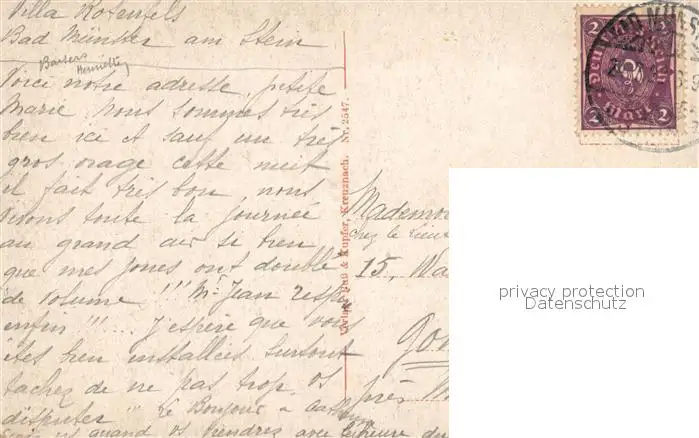 Villa Rotenfels
Bad Münster am Stein
Voici notre adresse, petite
Marie nous sommes très
bien ici et sauf un très
gros orage cette nuit
il fait très bon, nous
vivons toute la journée
au grand air si bien
que mes joues ont doublé
de volume !!! Mr Jean respire
enfin !!! ... J'espère que vous
êtes bien installées surtout
tachez de ne pas trop vs
disputer !!! Le Bonjour à
quand vs viendrez avec
Kupfer, Kreuznach. Nr. 2547.
2 2
Deutsches Reich
2 Mark 2
Mademoi
chez le Lieu
15, Wa
Gon
près
privacy protection
Datenschutz